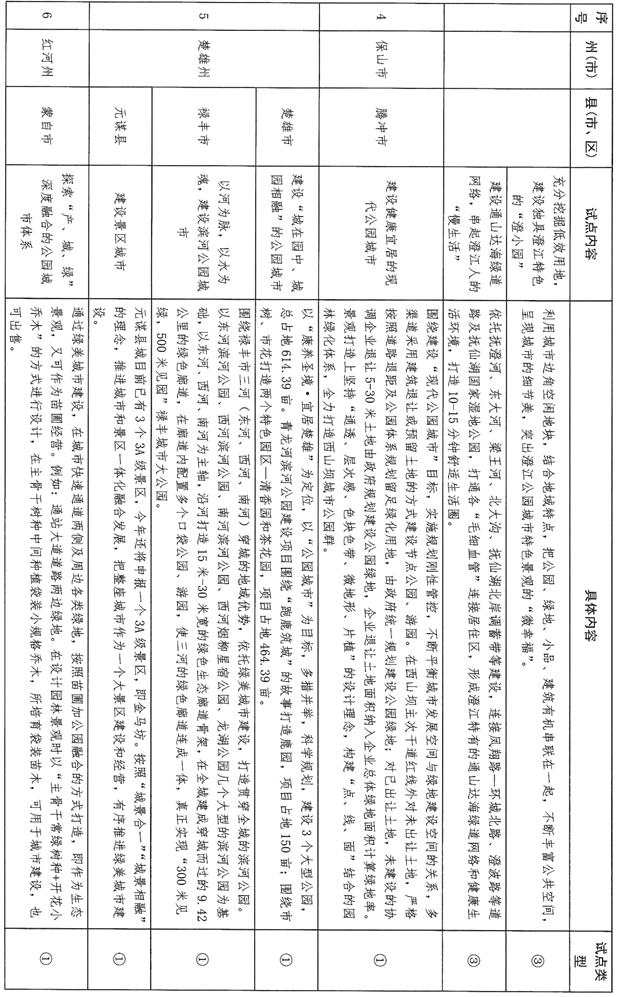 序号
州(市)
县(市、区)
试点内容
具体内容
试点类型
充分挖掘低效用地,
建设独具澄江特色
的“澄小园”
利用城市边角空闲地块, 结合地域特点, 把公园、绿地、小品、建筑有机串联在一起, 不断丰富公共空间,
呈现城市的细节美, 突出澄江公园城市特色景观的“微幸福”。
③
建设通山达海绿道
网络, 串起澄江人的
“慢生活”
依托抚澄河、东大河、梁王河、北大沟、抚仙湖北岸调蓄带等建设, 连接凤翔路—环城北路、澄波路等道
路及抚仙湖国家湿地公园, 打通各“毛细血管”连接居住区, 形成澄江特有的通山达海绿道网络和健康生
活环境, 打造 10-15 分钟舒适生活圈。
③
4
保山市
腾冲市
建设健康宜居的现
代公园城市
围绕建设“现代公园城市”目标, 实施规划刚性管控, 不断平衡城市发展空间与绿地建设空间的关系, 多
渠道采用建筑退让或预留土地的方式建设节点公园、游园。在西山坝主次干道红线外对未出让土地, 严格
按照道路退距及公园体系规划留足绿化用地, 由政府统一规划建设公园绿地; 对已出让土地, 未建设的协
调企业退让 5-30 米土地由政府规划建设公园绿地, 企业退让土地面积纳入企业总体绿地面积计算绿地率。
景观打造上坚持“通透、层次感、色块色带、微地形、片植”的设计理念, 构建“点、线、面”结合的园
林绿化体系, 全力打造西山坝城市公园群。
①
5
楚雄州
楚雄市
建设“城在园中、城
园相融”的公园城市
以“康养圣境·宜居楚雄”为定位, 以“公园城市”为目标, 多措并举, 科学规划, 建设 3 个大型公园,
总占地 614.39 亩。青龙河滨河公园建设项目围绕“跑鹿筑城”的故事打造鹿园, 项目占地 150 亩; 围绕市
树、市花打造两个特色园区—清香园和茶花园, 项目占地 464.39 亩。
①
禄丰市
以河为脉, 以水为
魂, 建设滨河公园城
市
围绕禄丰市三河(东河、西河、南河)穿城的地域优势, 依托绿美城市建设, 打造贯穿全城的滨河公园。
以东河滨河公园、西河滨河公园、南河滨河公园、西河烟柳星宿公园、龙湖公园几个大型的滨河公园为基
础, 以东河、西河、南河为主轴, 沿河打造 15 米-30 米宽的绿色生态廊道骨架, 在全城建成穿城而过的 9.42
公里的绿色廊道, 在廊道内配置多个口袋公园、游园, 使三河的绿色廊道连成一体, 真正实现“300 米见
绿, 500 米见园”禄丰城市大公园。
①
元谋县
建设景区城市
元谋县城目前已有 3 个 3A 级景区, 今年还将申报一个 3A 级景区, 即金马坊。按照“城景合一”“城景相融”
的理念, 推进城市和景区一体化融合发展, 把整座城市作为一个大景区建设和经营, 有序推进绿美城市建
设。
①
6
红河州
蒙自市
探索“产、城、绿”
深度融合的公园城
市体系
通过绿美城市建设, 在城市快速通道两侧及周边各类绿地, 按照苗圃加公园融合的方式打造, 即作为生态
景观, 又可作为苗圃经营。例如: 通站大道道路两边绿地。在设计园林景观时以“主骨干常绿树种+开花小
乔木”的方式进行设计, 在主骨干树种中间种植袋装小规格乔木, 所培育袋装苗木, 可用于城市建设, 也
可出售。
①